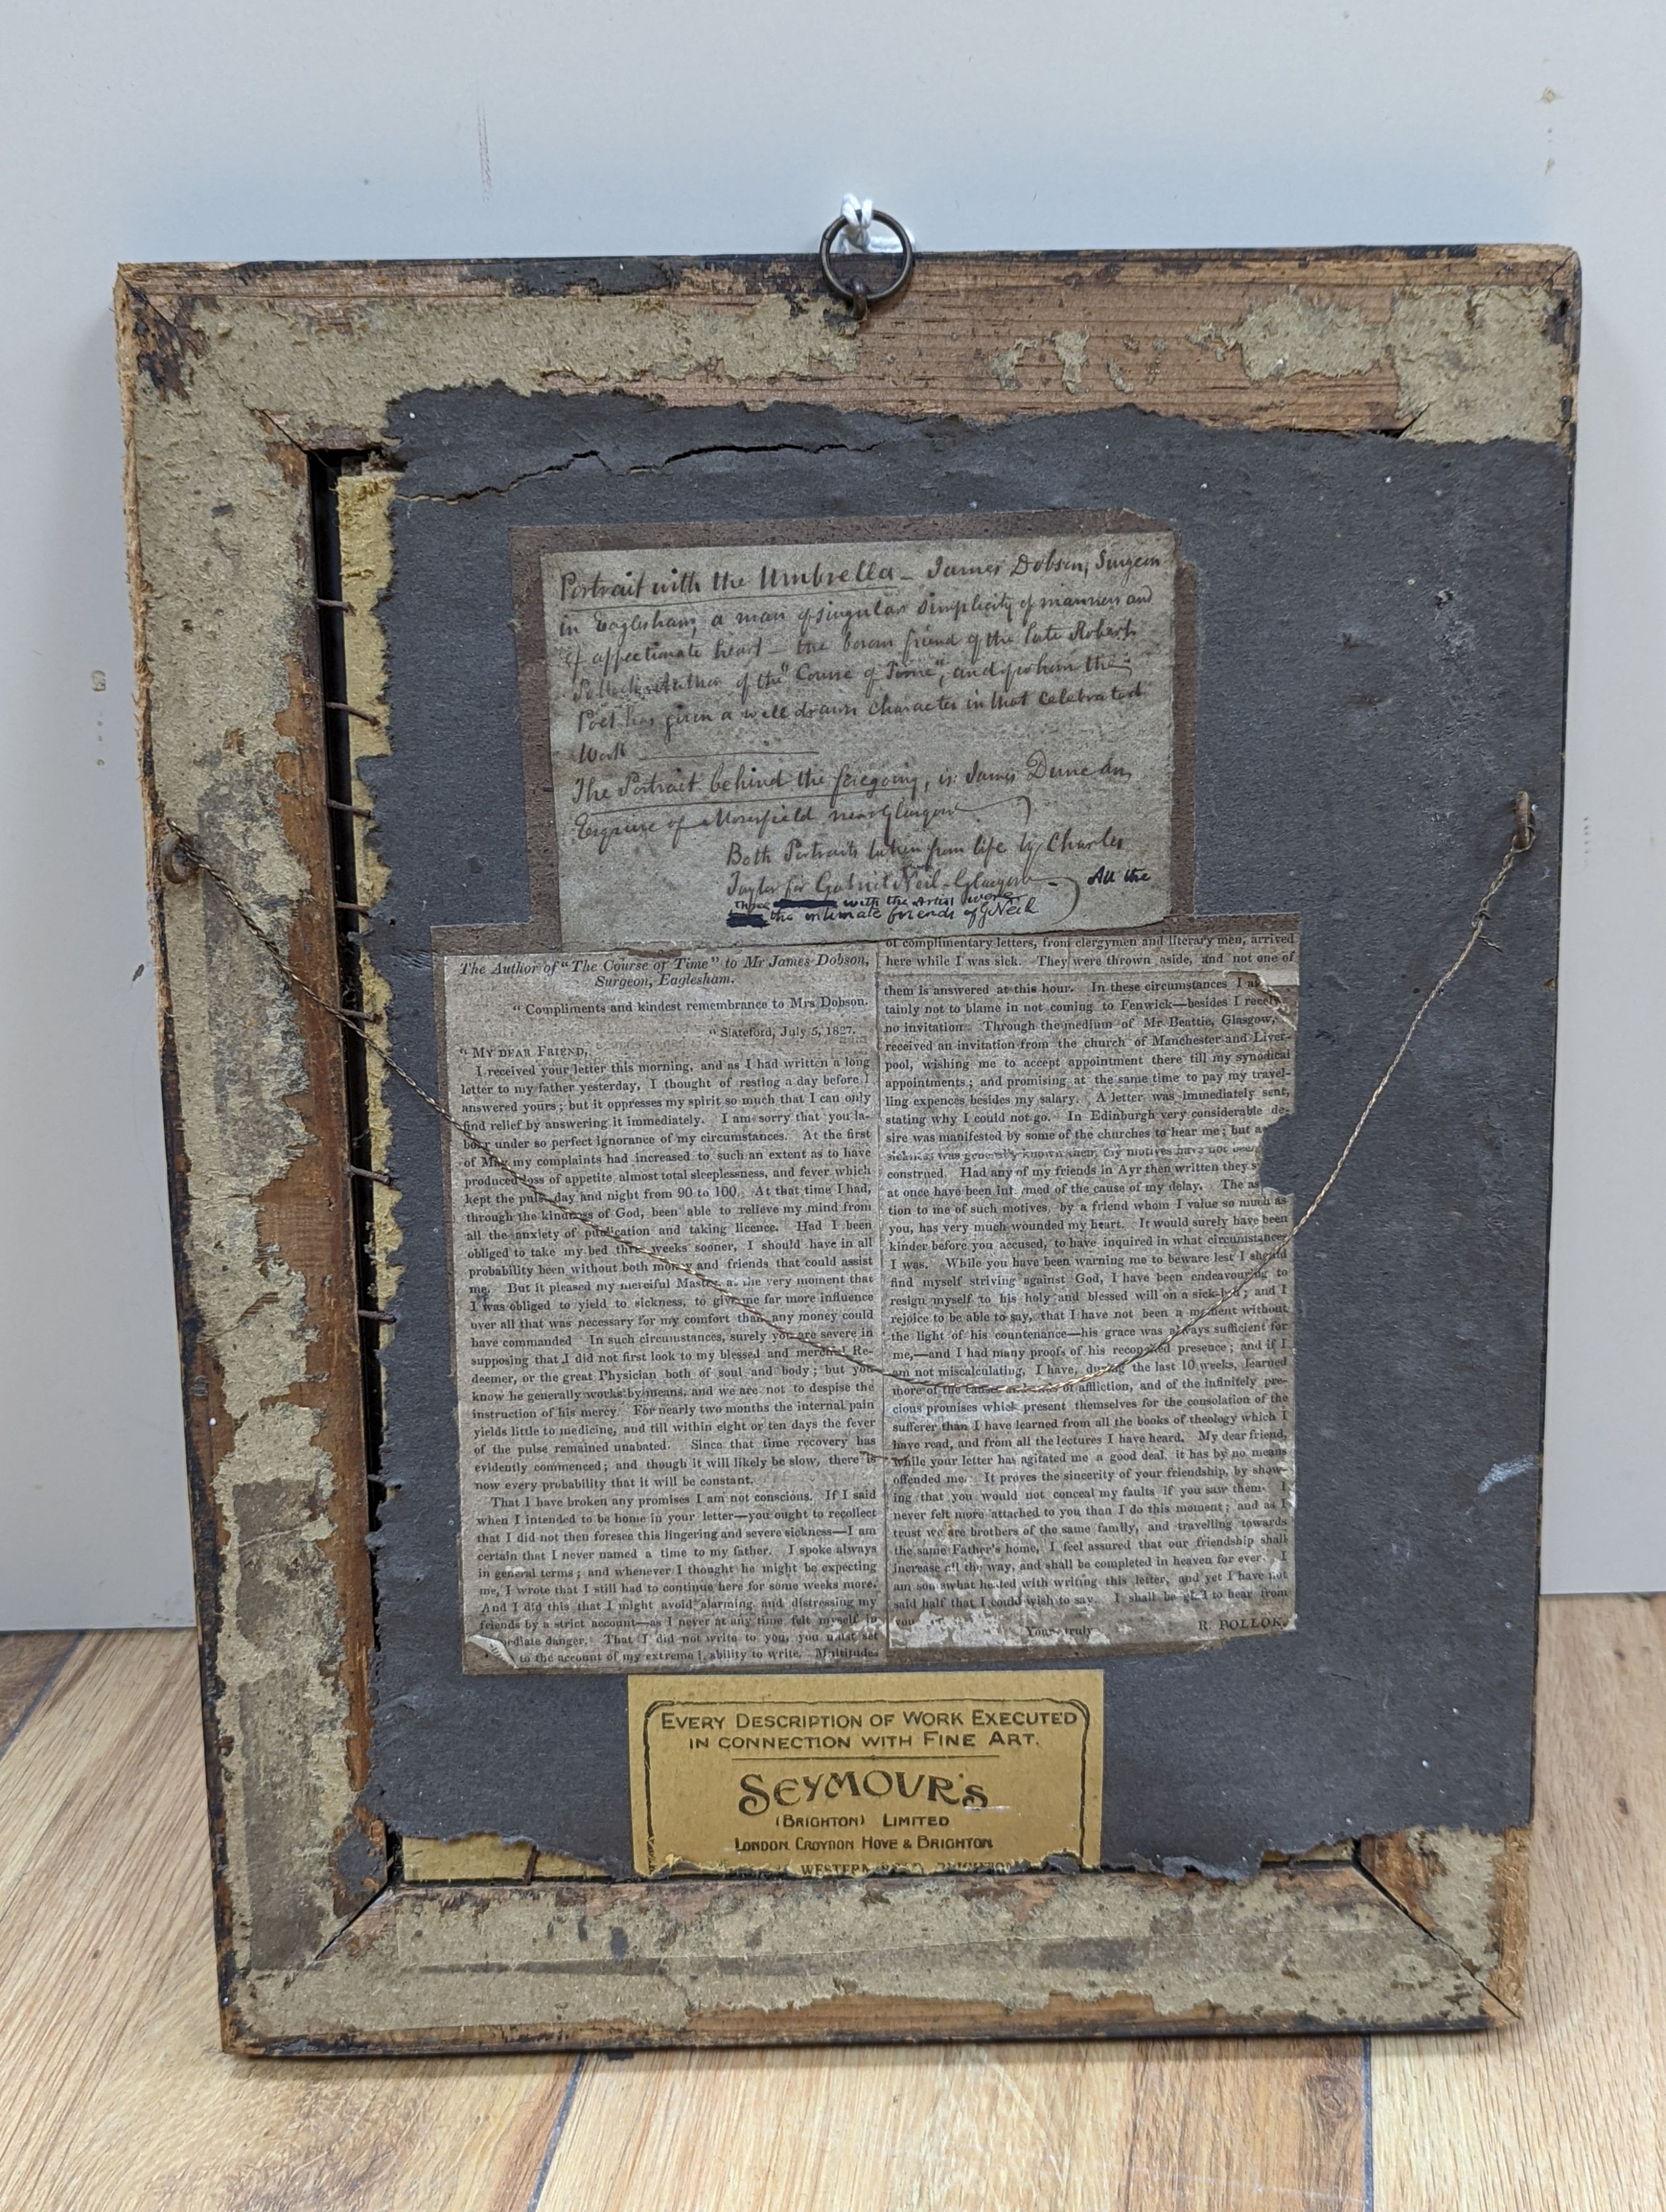 Portrait with the Umbrella – James Dobson, Surgeon
in Eaglesham, a man of singular simplicity of manners and
of affectionate heart – the bosom friend of the late Robert
Pollock Author of the "Course of Time", and of whom the
Poet has given a well drawn character in that celebrated
Work
The Portrait behind the foregoing, is James Duncan,
Esquire of Mosesfield near Glasgow
Both Portraits taken from life by Charles
Taylor for Gabriel Neil – Glasgow. All the
three with the Artist were
the intimate friends of G Neil
The Author of "The Course of Time" to Mr James Dobson,
Surgeon, Eaglesham.
"Compliments and kindest remembrance to Mrs Dobson.
"Slateford, July 5, 1827.
"MY DEAR FRIEND,
I received your letter this morning, and as I had written a long
letter to my father yesterday, I thought of resting a day before I
answered yours; but it oppresses my spirit so much that I can only
find relief by answering it immediately. I am sorry that you la-
bour under so perfect ignorance of my circumstances. At the first
of May my complaints had increased to such an extent as to have
produced loss of appetite, almost total sleeplessness, and fever which
kept the pulse day and night from 90 to 100. At that time I had,
through the kindness of God, been able to relieve my mind from
all the anxiety of publication and taking licence. Had I been
obliged to take my bed three weeks sooner, I should have in all
probability been without both money and friends that could assist
me. But it pleased my merciful Master, at the very moment that
I was obliged to yield to sickness, to give me far more influence
over all that was necessary for my comfort than any money could
have commanded In such circumstances, surely you are severe in
supposing that I did not first look to my blessed and merciful Re-
deemer, or the great Physician both of soul and body; but you
know he generally works by means, and we are not to despise the
instruction of his mercy. For nearly two months the internal pain
yields little to medicine, and till within eight or ten days the fever
of the pulse remained unabated. Since that time recovery has
evidently commenced; and though it will likely be slow, there is
now every probability that it will be constant.
That I have broken any promises I am not conscious. If I said
when I intended to be home in your letter—you ought to recollect
that I did not then foresee this lingering and severe sickness—I am
certain that I never named a time to my father. I spoke always
in general terms; and whenever I thought he might be expecting
me, I wrote that I still had to continue here for some weeks more.
And I did this that I might avoid alarming and distressing my
friends by a strict account—as I never at any time felt myself in
ediate danger. That I did not write to you, you must set
to the account of my extreme inability to write. Multitudes
of complimentary letters, from clergymen and literary men, arrived
here while I was sick. They were thrown aside, and not one of
them is answered at this hour. In these circumstances I a
tainly not to blame in not coming to Fenwick—besides I rece
no invitation. Through the medium of Mr Beattie, Glasgow,
received an invitation from the church of Manchester and Liver-
pool, wishing me to accept appointment there till my synodical
appointments; and promising at the same time to pay my travel-
ling expences besides my salary. A letter was immediately sent,
stating why I could not go. In Edinburgh very considerable de-
sire was manifested by some of the churches to hear me; but a
sickness was generally known there, my motives have not been
construed. Had any of my friends in Ayr then written they s
at once have been informed of the cause of my delay. The as
tion to me of such motives, by a friend whom I value so much as
you, has very much wounded my heart. It would surely have been
kinder before you accused, to have inquired in what circumstances
I was. While you have been warning me to beware lest I should
find myself striving against God, I have been endeavouring to
resign myself to his holy and blessed will on a sick-bed; and I
rejoice to be able to say, that I have not been a moment without
the light of his countenance—his grace was always sufficient for
me,—and I had many proofs of his reconciled presence; and if I
am not miscalculating, I have, during the last 10 weeks, learned
more of the of affliction, and of the infinitely pre-
cious promises which present themselves for the consolation of the
sufferer than I have learned from all the books of theology which I
have read, and from all the lectures I have heard. My dear friend,
while your letter has agitated me a good deal, it has by no means
offended me. It proves the sincerity of your friendship, by show-
ing that you would not conceal my faults if you saw them. I
never felt more attached to you than I do this moment; and as I
trust we are brothers of the same family, and travelling towards
the same Father's home, I feel assured that our friendship shall
increase all the way, and shall be completed in heaven for ever. I
am somewhat heated with writing this letter, and yet I have not
said half that I could wish to say. I shall be glad to hear from
you
Yours truly
R. POLLOK.
EVERY DESCRIPTION OF WORK EXECUTED
IN CONNECTION WITH FINE ART.
SEYMOUR'S
(BRIGHTON) LIMITED
LONDON, CROYDON, HOVE & BRIGHTON
WESTERN BRIGHTON